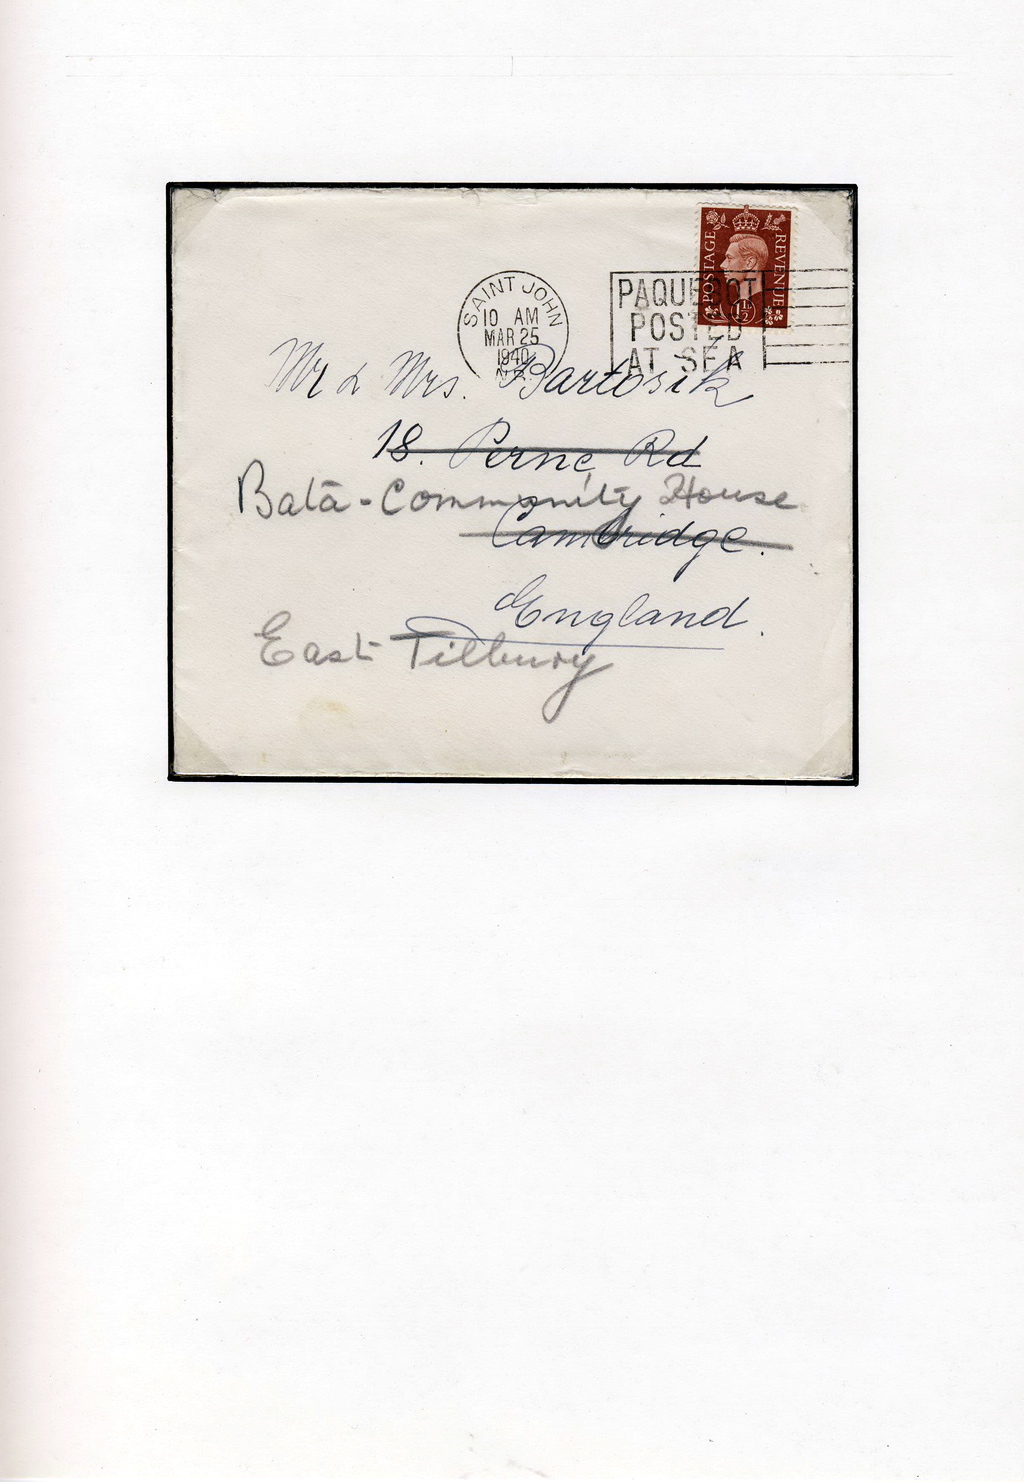 POSTAGE REVENUE
1½D
SAINT JOHN
10 AM
MAR 25
1940
N.B.
PAQUEBOT
POSTED
AT SEA
Mr & Mrs. Bartosik
18. Perne Rd
Bata - Community House
Cambridge.
England.
East Tilbury